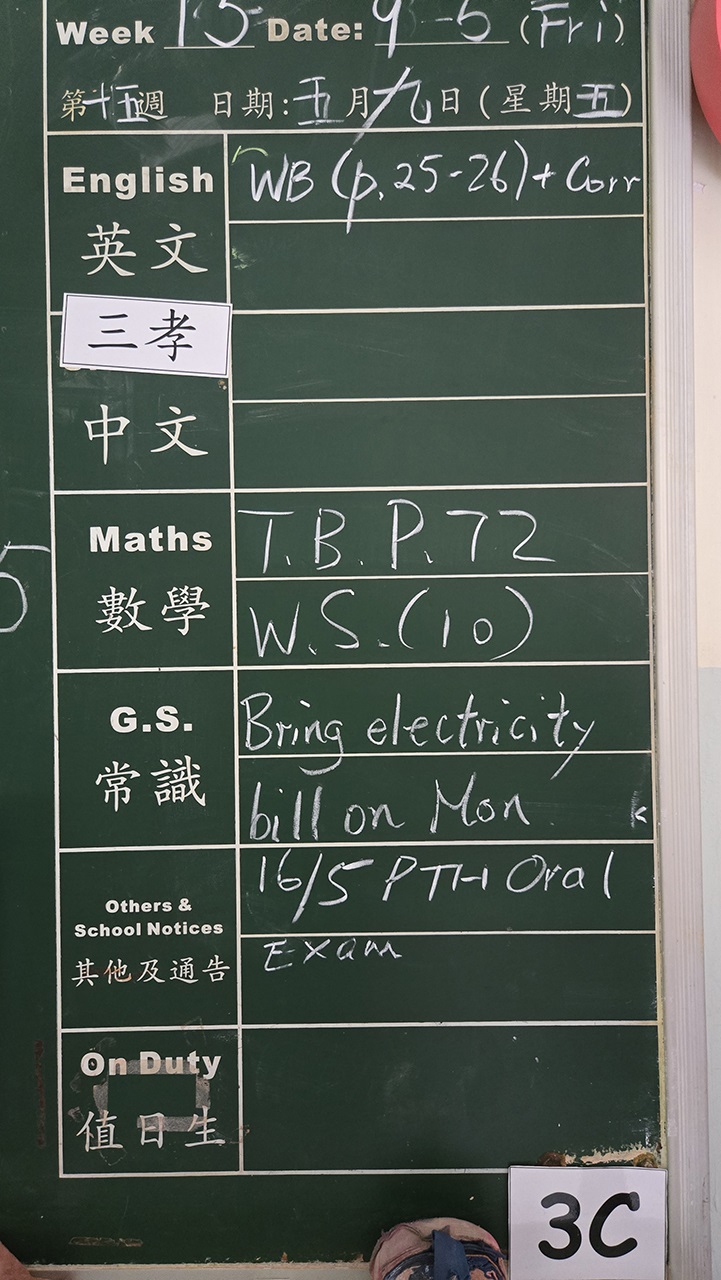 Week 15 Date: 9-5 (Fri)
第十五週 日期:五月九日(星期五)
English WB (p.25-26)+ Corr
英文
三孝
中文
Maths T.B. P. 72
數學 W.S.(10)
G.S. Bring electricity
常識 bill on Mon.
Others & 16/5 PTH Oral
School Notices
其他及通告 Exam
On Duty
值日生
3C